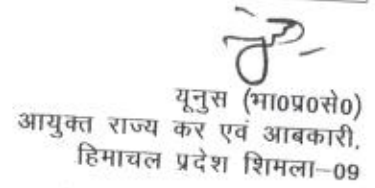 यूनुस (भा०प्र०से०)
आयुक्त राज्य कर एवं आबकारी,
हिमाचल प्रदेश शिमला–09